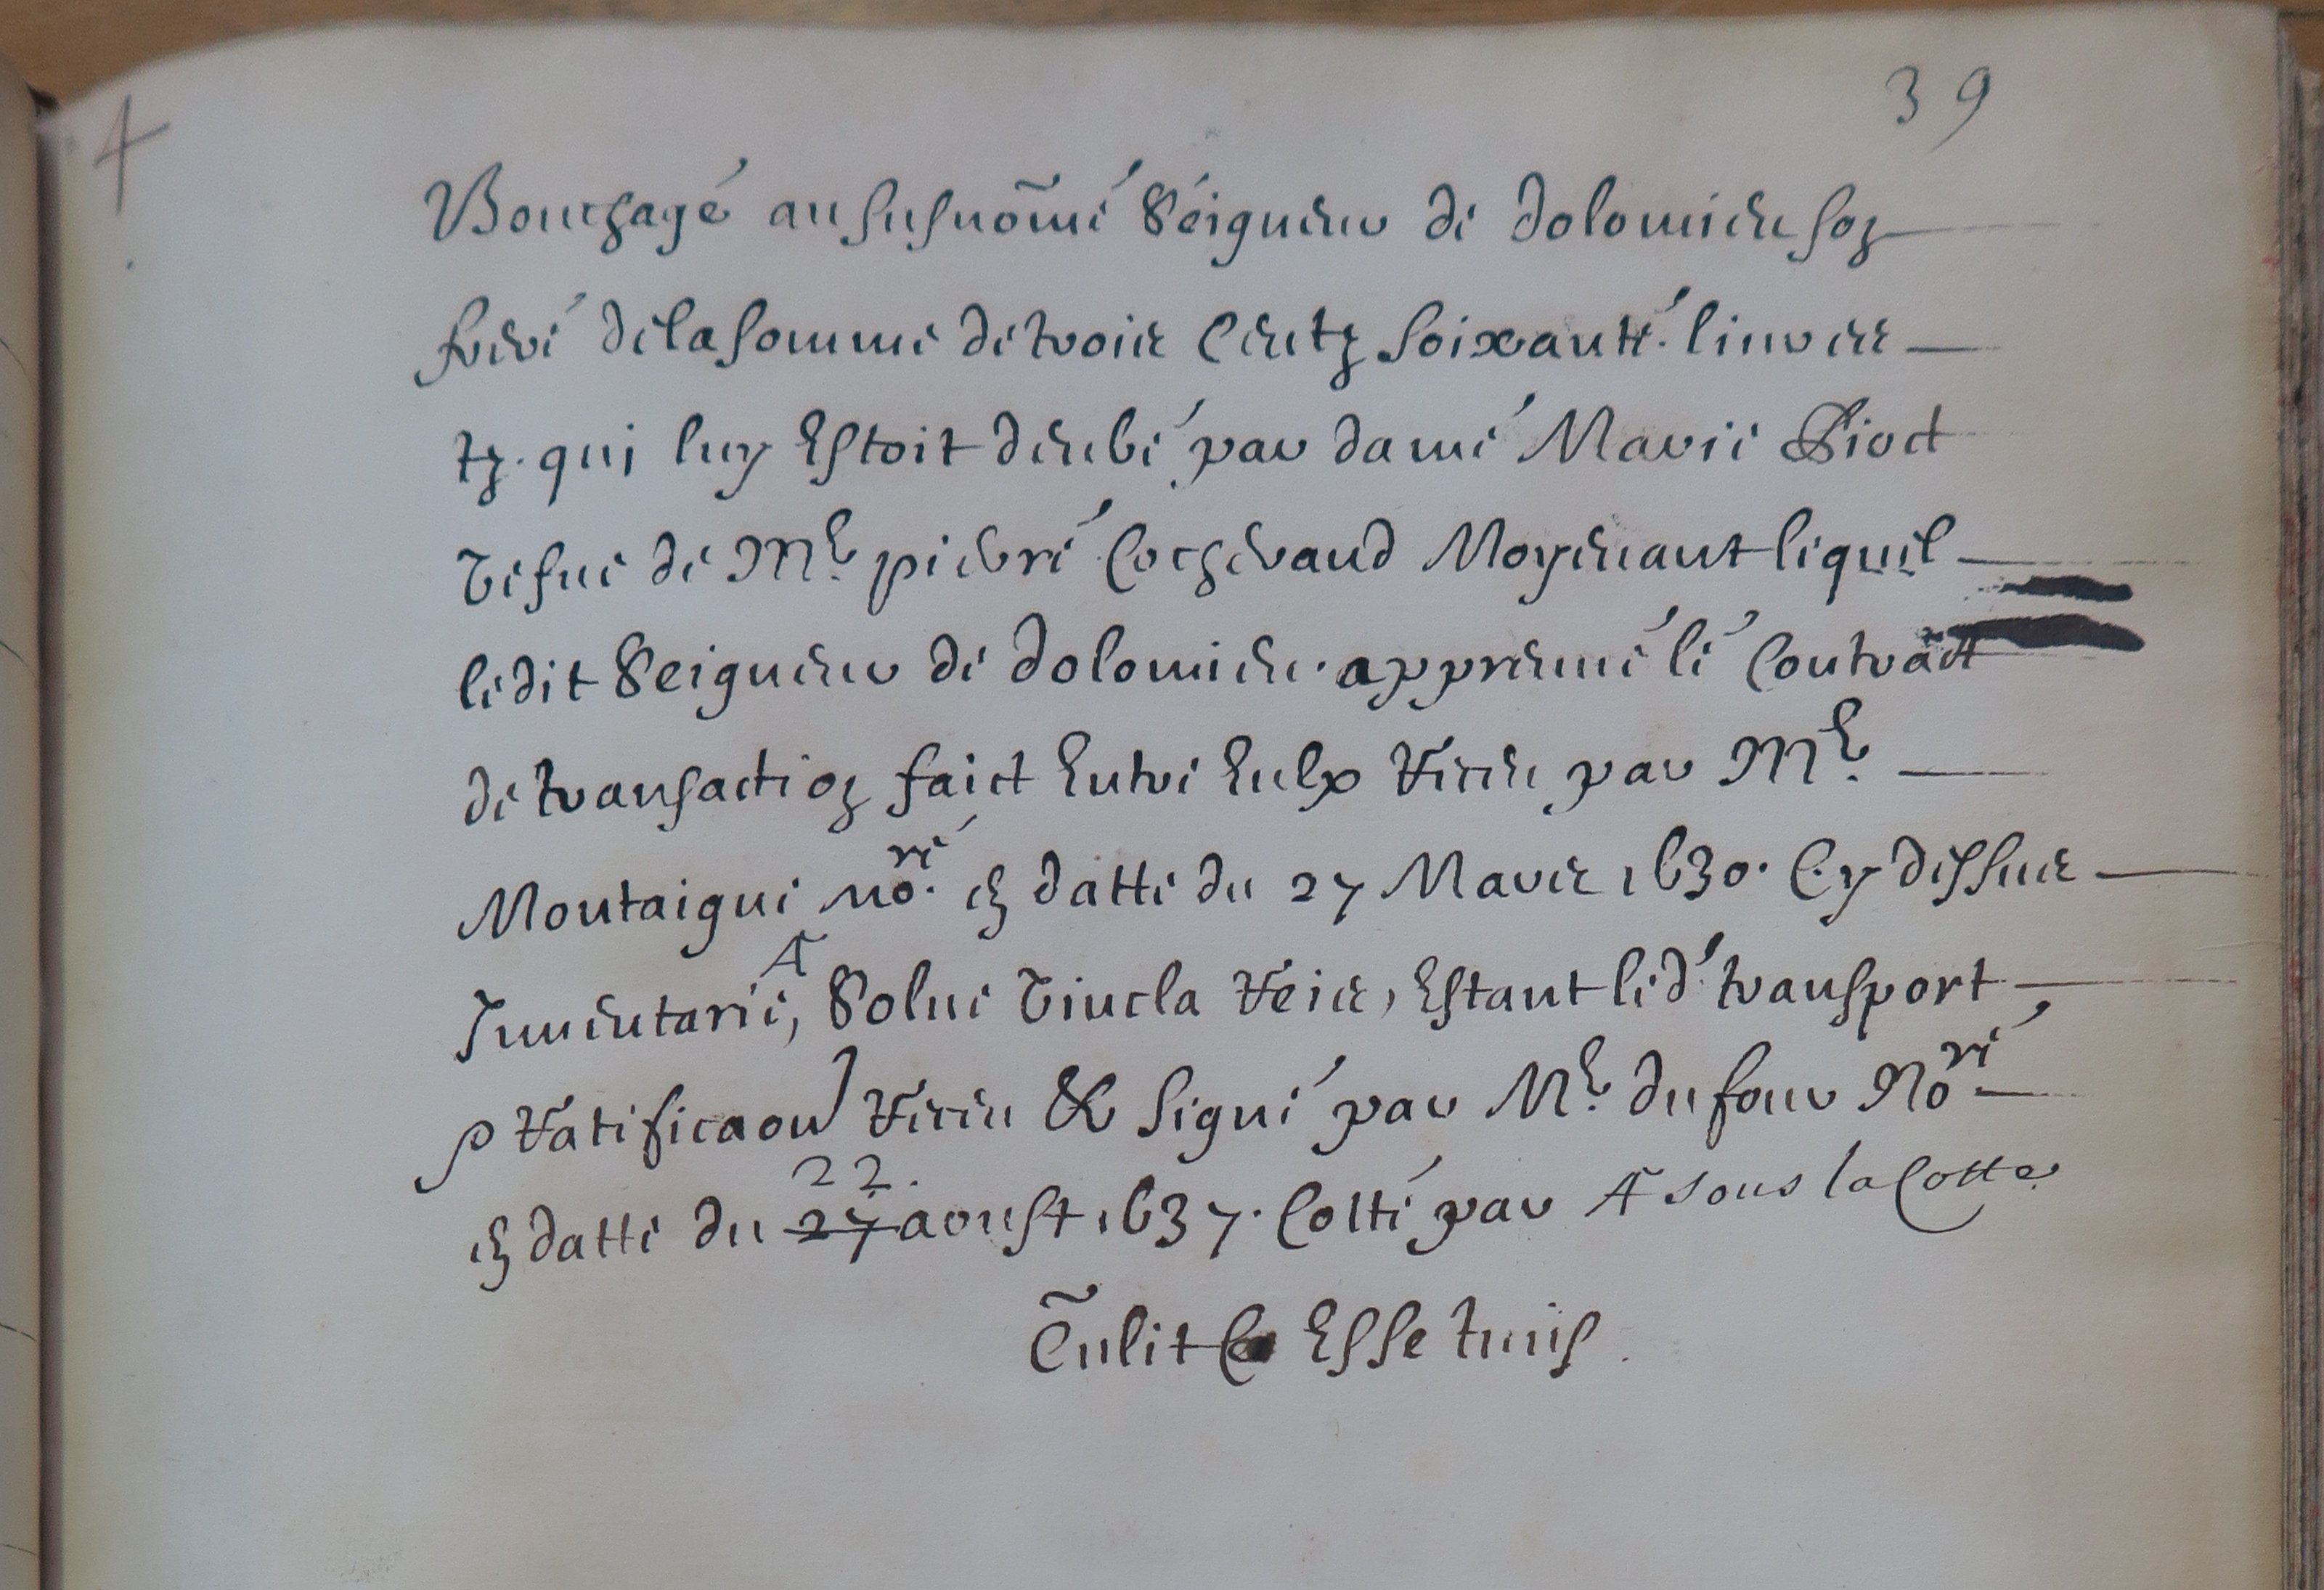 39
4
Bouchage au susnōmé Seigneur de dolomieu son
frere de la somme de trois Centz soixante livres
tz. qui luy Estoit deube par dame Marie
vefue de Mᵉ pierre Cocheraud Moyenant lequel
ledit Seigneur de dolomieu appreuue le Contract
de transaction faict Entre Eulx Receu par Mᵉ
Montaigne noʳᵉ en datte du 27 Mars 1630. Cy dessus
Inuentarié, A Solue Reis, Estant led. transport
p Ratificaon Receu & signé par Mᵉ dufour Noʳᵉ
en datte du 27 22. aoust 1637. Cotté par A sous la Cotte
Tulit Esse